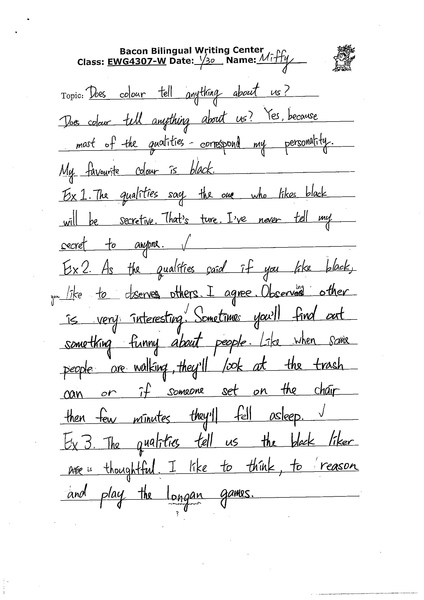 Bacon Bilingual Writing Center
Class: EWG4307-W Date: 1/30 Name: Miffy
Topic: Does colour tell anything about us?
Does colour tell anything about us? Yes, because
most of the qualities - correspond my personality.
My favourite colour is black.
Ex 1. The qualities say the one who likes black
will be secretive. That's ture. I've never tell my
secret to anyone. ✓
Ex 2. As the qualities said if you like black,
you like to observes others. I agree. Observing other
is very interesting! Sometimes you'll find out
something funny about people. Like when some
people are walking, they'll look at the trash
can or if someone set on the chair
then few minutes they'll fell asleep. ✓
Ex 3. The qualities tell us the black liker
is thoughtful. I like to think, to reason
and play the longan games.
?